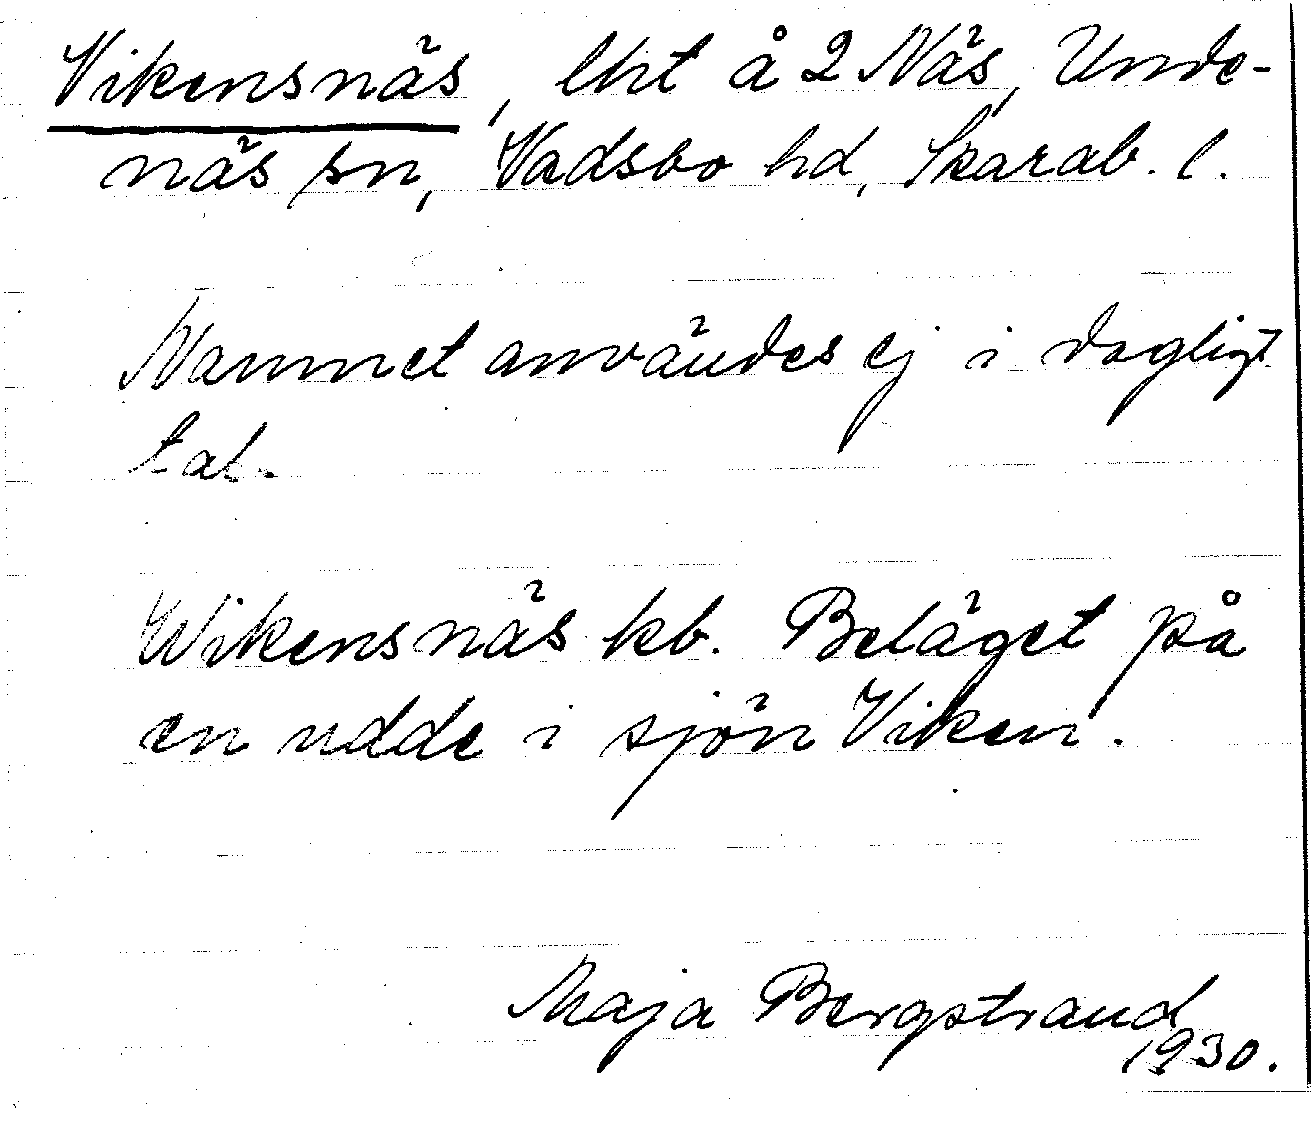 Vikensnäs, lht å 2 Näs, Unde-
näs sn, Vadsbo hd, Skarab. l.
Namnet användes ej i dagligt
tal.
Wikensnäs kb. Beläget på
en udde i sjön Viken.
Maja Bergstrand
1930.